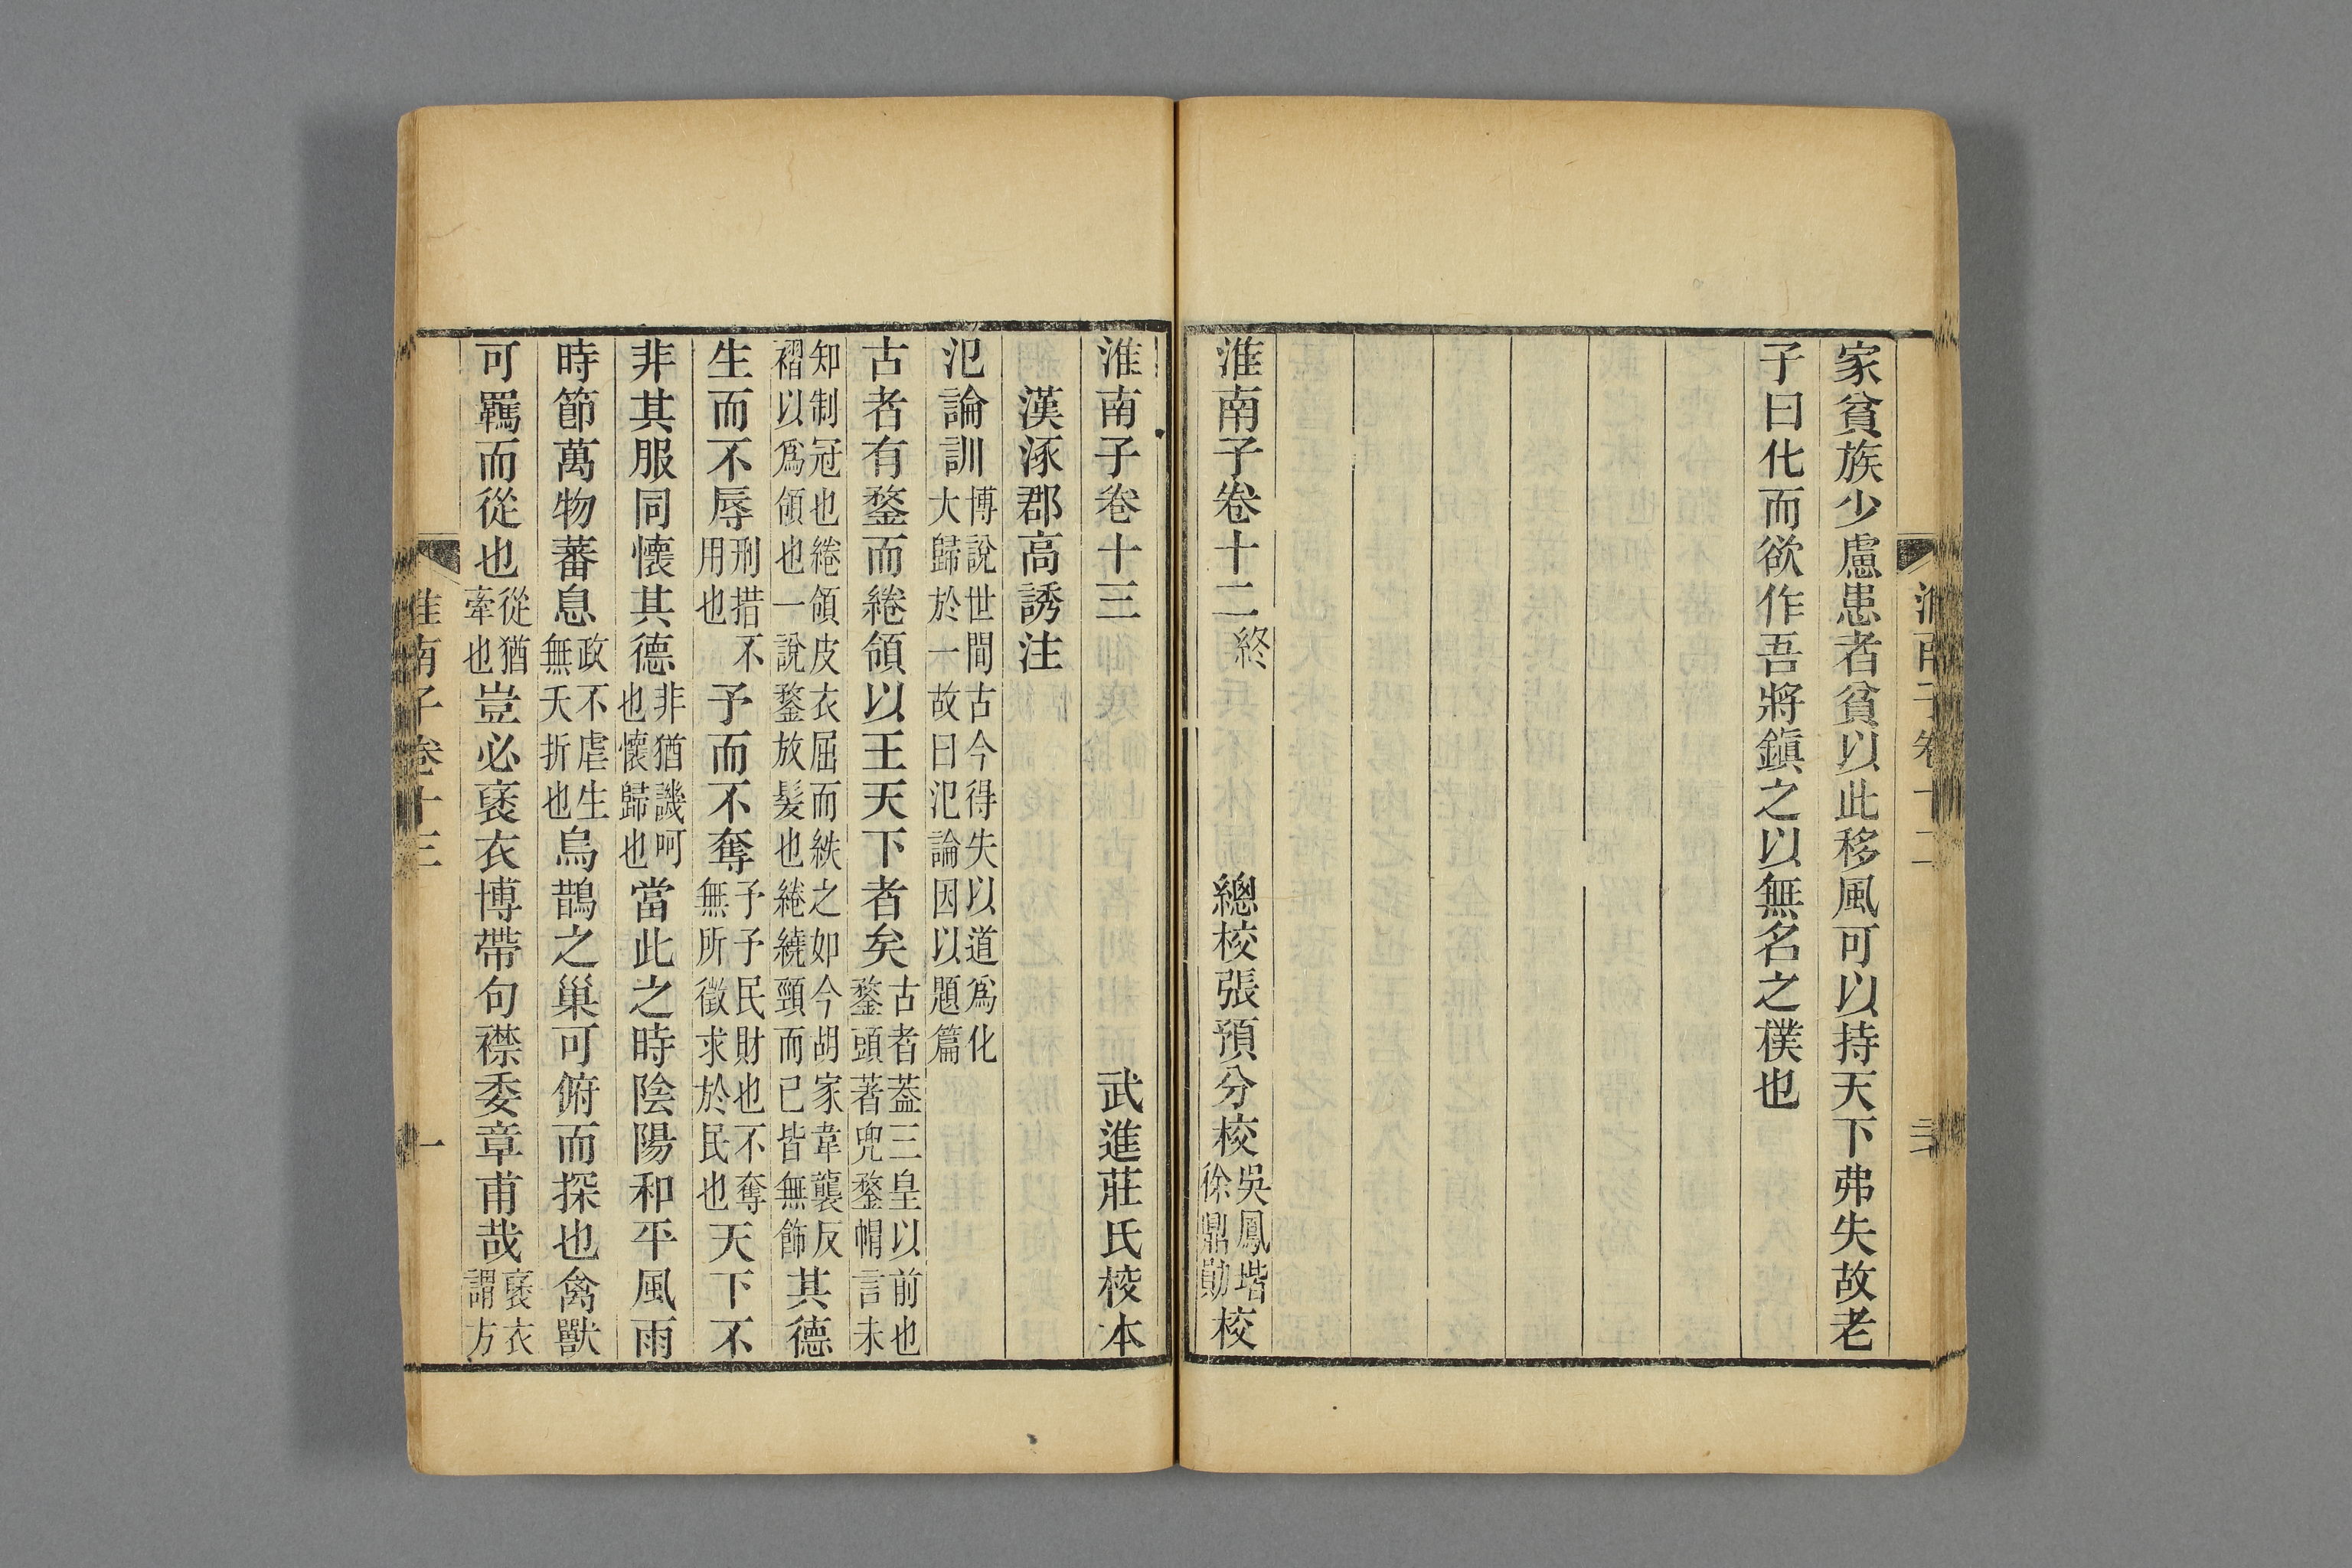 淮南子卷十二
家貧族少慮患者貧以此移風可以持天下弗失故老
子曰化而欲作吾將鎮之以無名之樸也
淮南子卷十二終 總校張預分校吳鳳堦徐鼎勛校
淮南子卷十三 武進莊氏校本
漢涿郡高誘注
氾論訓博說世間古今得失以道爲化大歸於一故曰氾論因以題篇
古者有鍪而綣領以王天下者矣古者葢三皇以前也鍪頭著兜鍪帽言未
知制冠也綣領皮衣屈而紩之如今胡家韋襲反褶以爲領也一說鍪放髮也綣繞頸而已皆無飾其德
生而不辱刑措不用也予而不奪予予民財也不奪無所徵求於民也天下不
非其服同懷其德非猶譏呵也懷歸也當此之時陰陽和平風雨
時節萬物蕃息政不虐生無夭折也烏鵲之巢可俯而探也禽獸
可羈而從也從猶牽也豈必襃衣博帶句襟委章甫哉襃衣謂方
淮南子卷十三 一